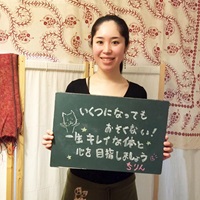 いくつになっても
おそくない!
一生キレイな体と
心を目指しましょう
ちりん